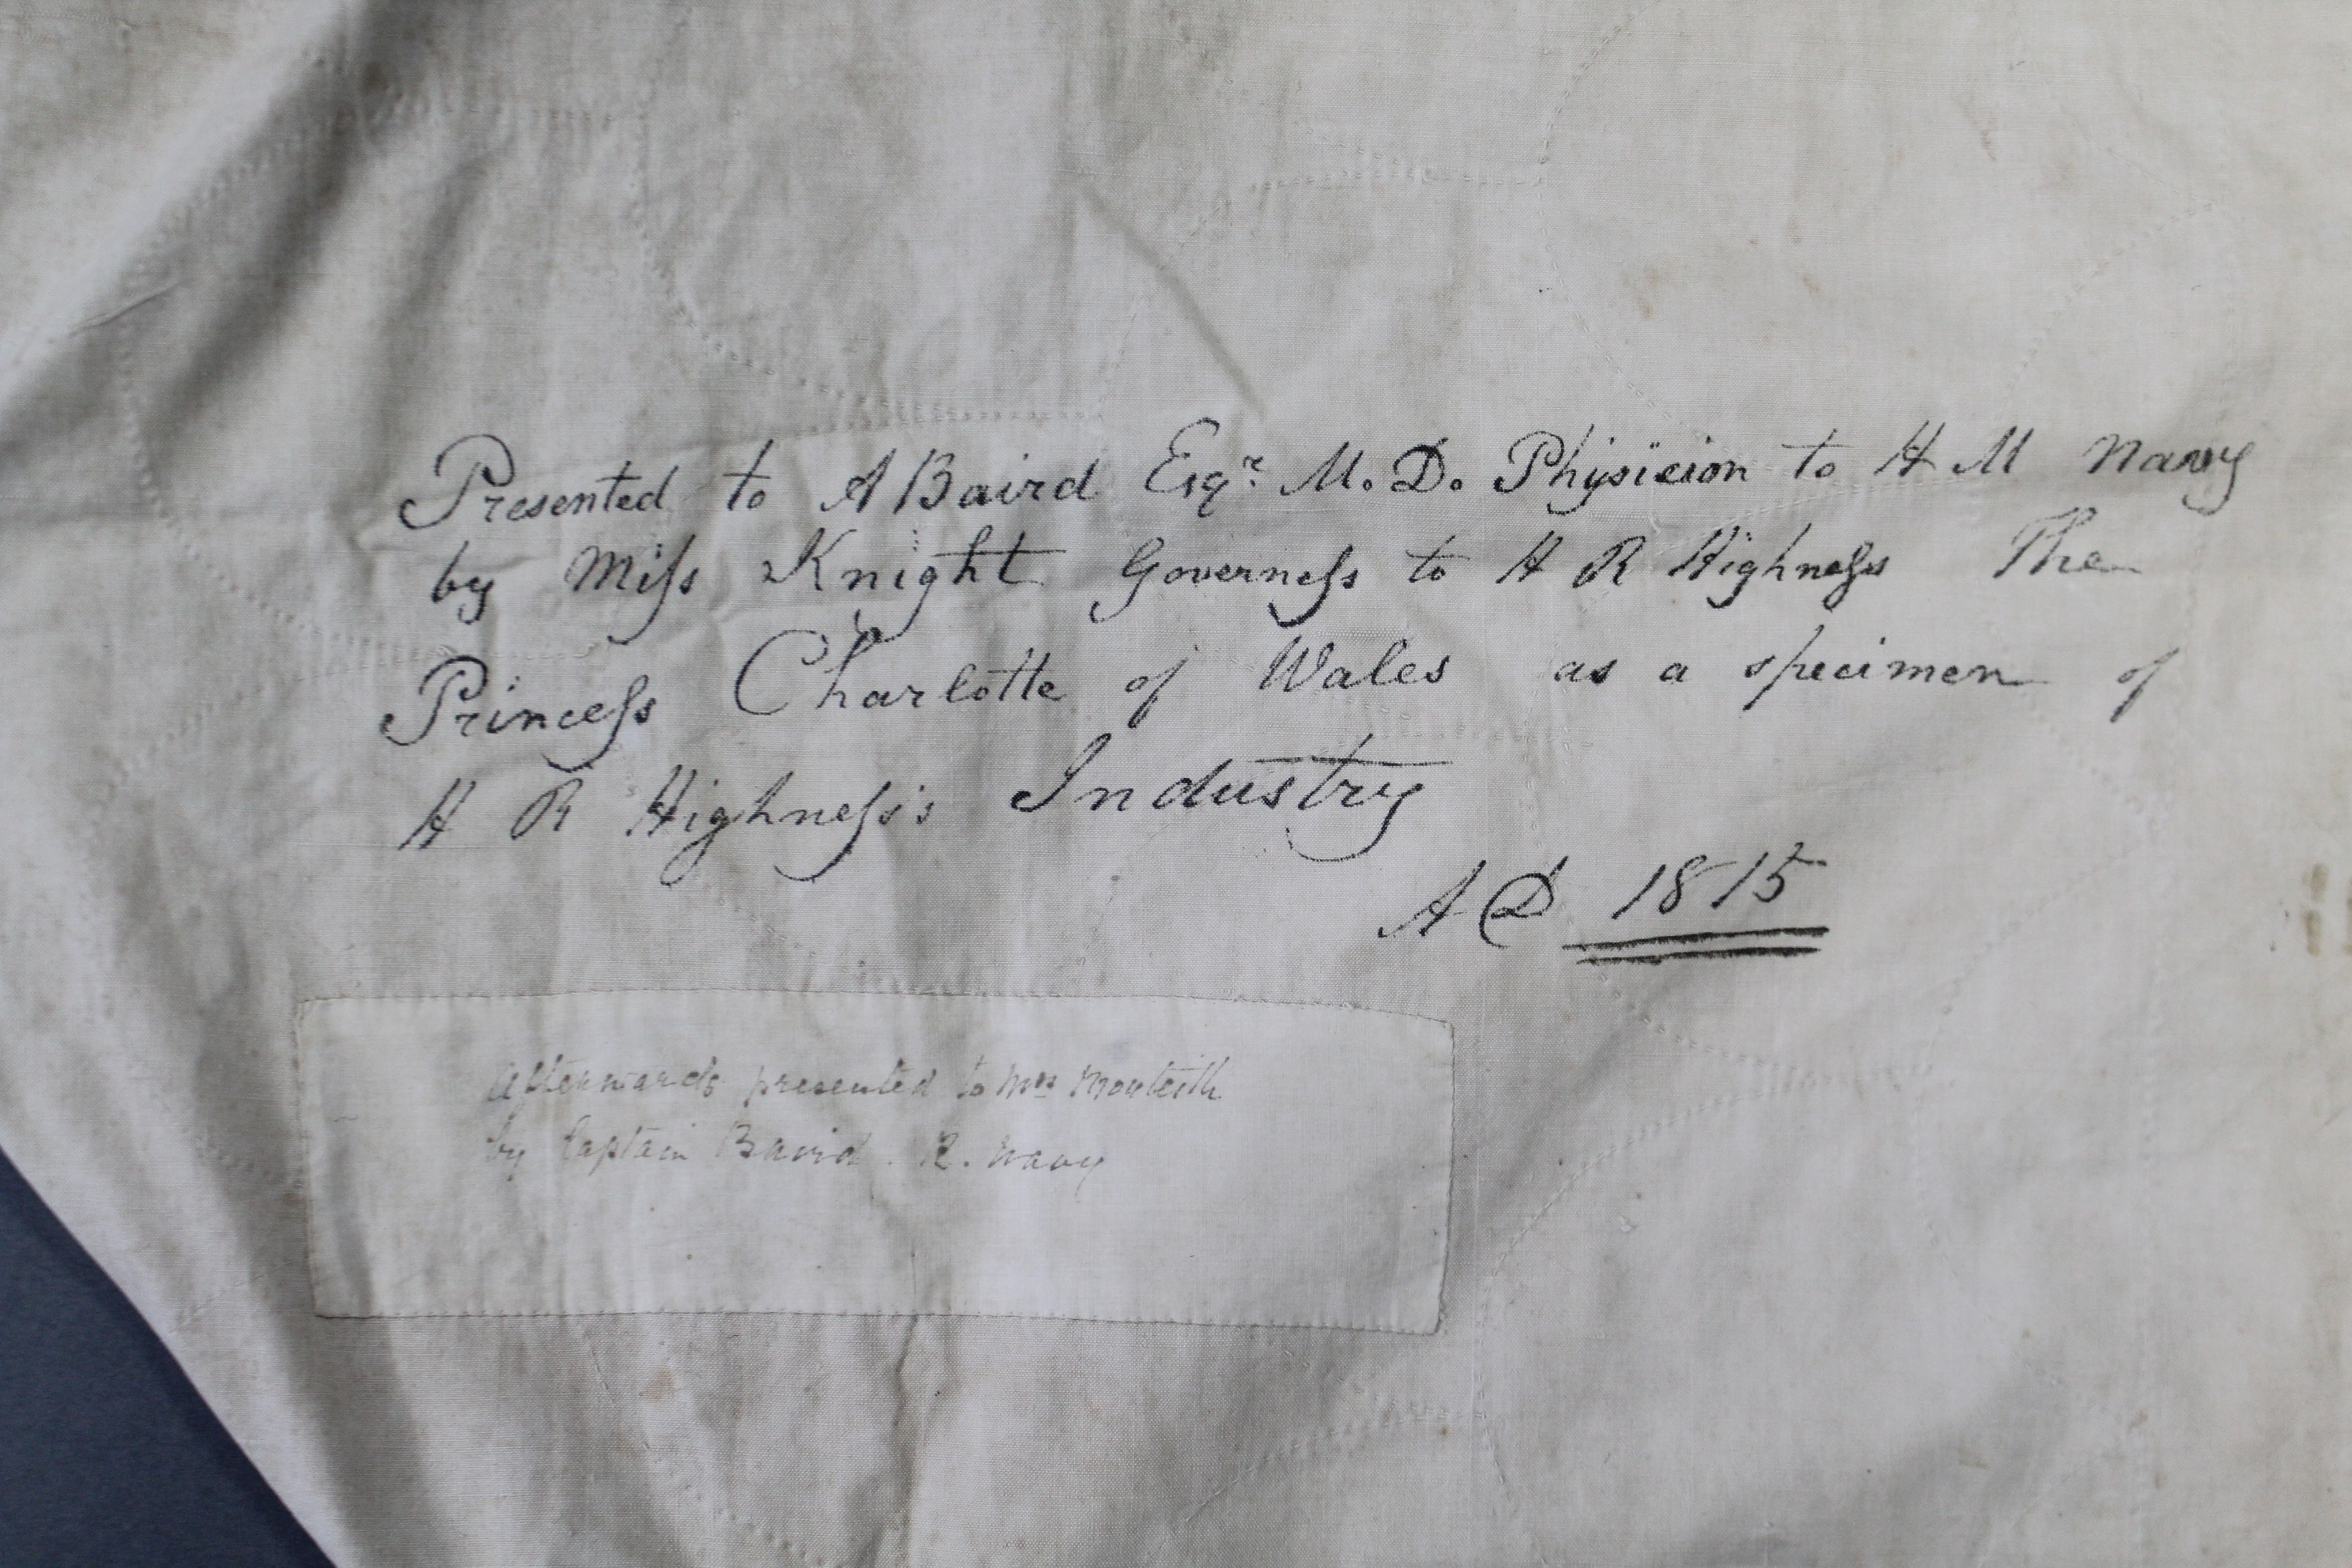 Presented to A Baird Esqr M.D. Physicion to H M Navy
by Miſs Knight Governeſs to H R Highneſs The
Princeſs Charlotte of Wales as a specimen of
H R Highneſs's Industry
A D 1815
Afterwards presented to Mrs Monteith
by Captain Baird. R. Navy